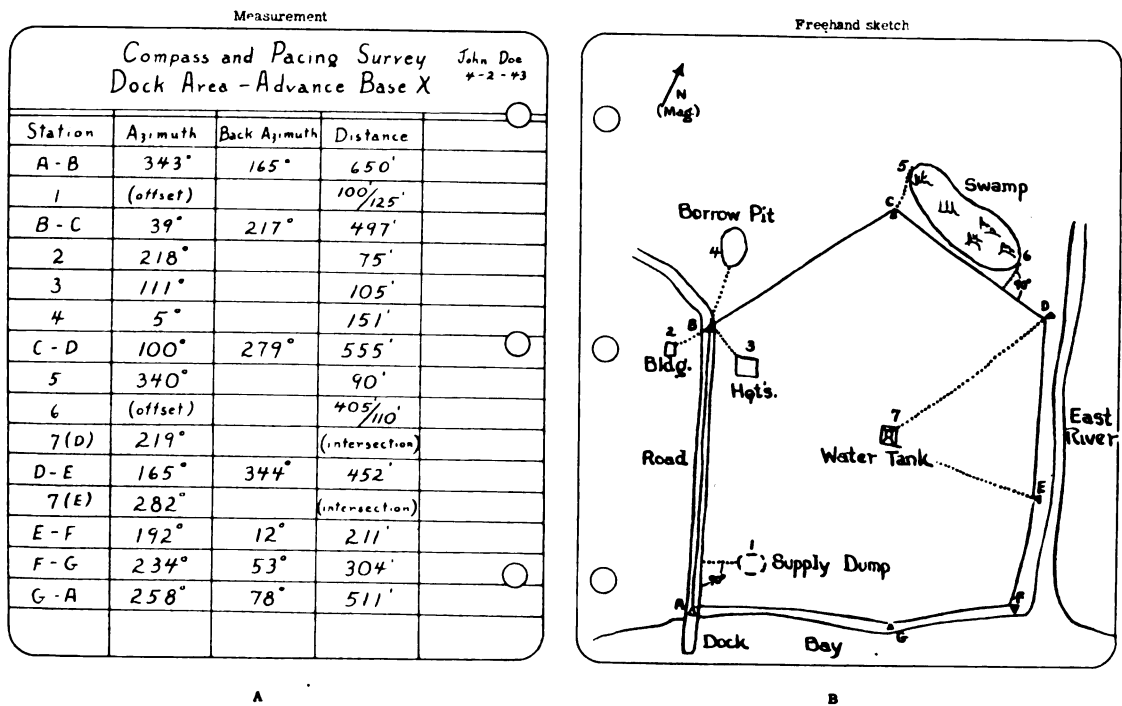 Measurement
Compass and Pacing Survey
Dock Area - Advance Base X
John Doe
4-2-43
Station Azimuth Back Azimuth Distance
A-B 343° 165° 650'
1 (offset) 100'/125'
B-C 39° 217° 497'
2 218° 75'
3 111° 105'
4 5° 151'
C-D 100° 279° 555'
5 340° 90'
6 (offset) 405'/110'
7(D) 219° (intersection)
D-E 165° 344° 452'
7(E) 282° (intersection)
E-F 192° 12° 211'
F-G 234° 53° 304'
G-A 258° 78° 511'
A
Freehand sketch
N
(Mag)
5
Swamp
C
Borrow Pit
4
6
90°
D
B
2
Bldg.
3
Hqt's.
7
Water Tank
East
River
Road
E
1
Supply Dump
90°
A
F
G
Dock
Bay
B